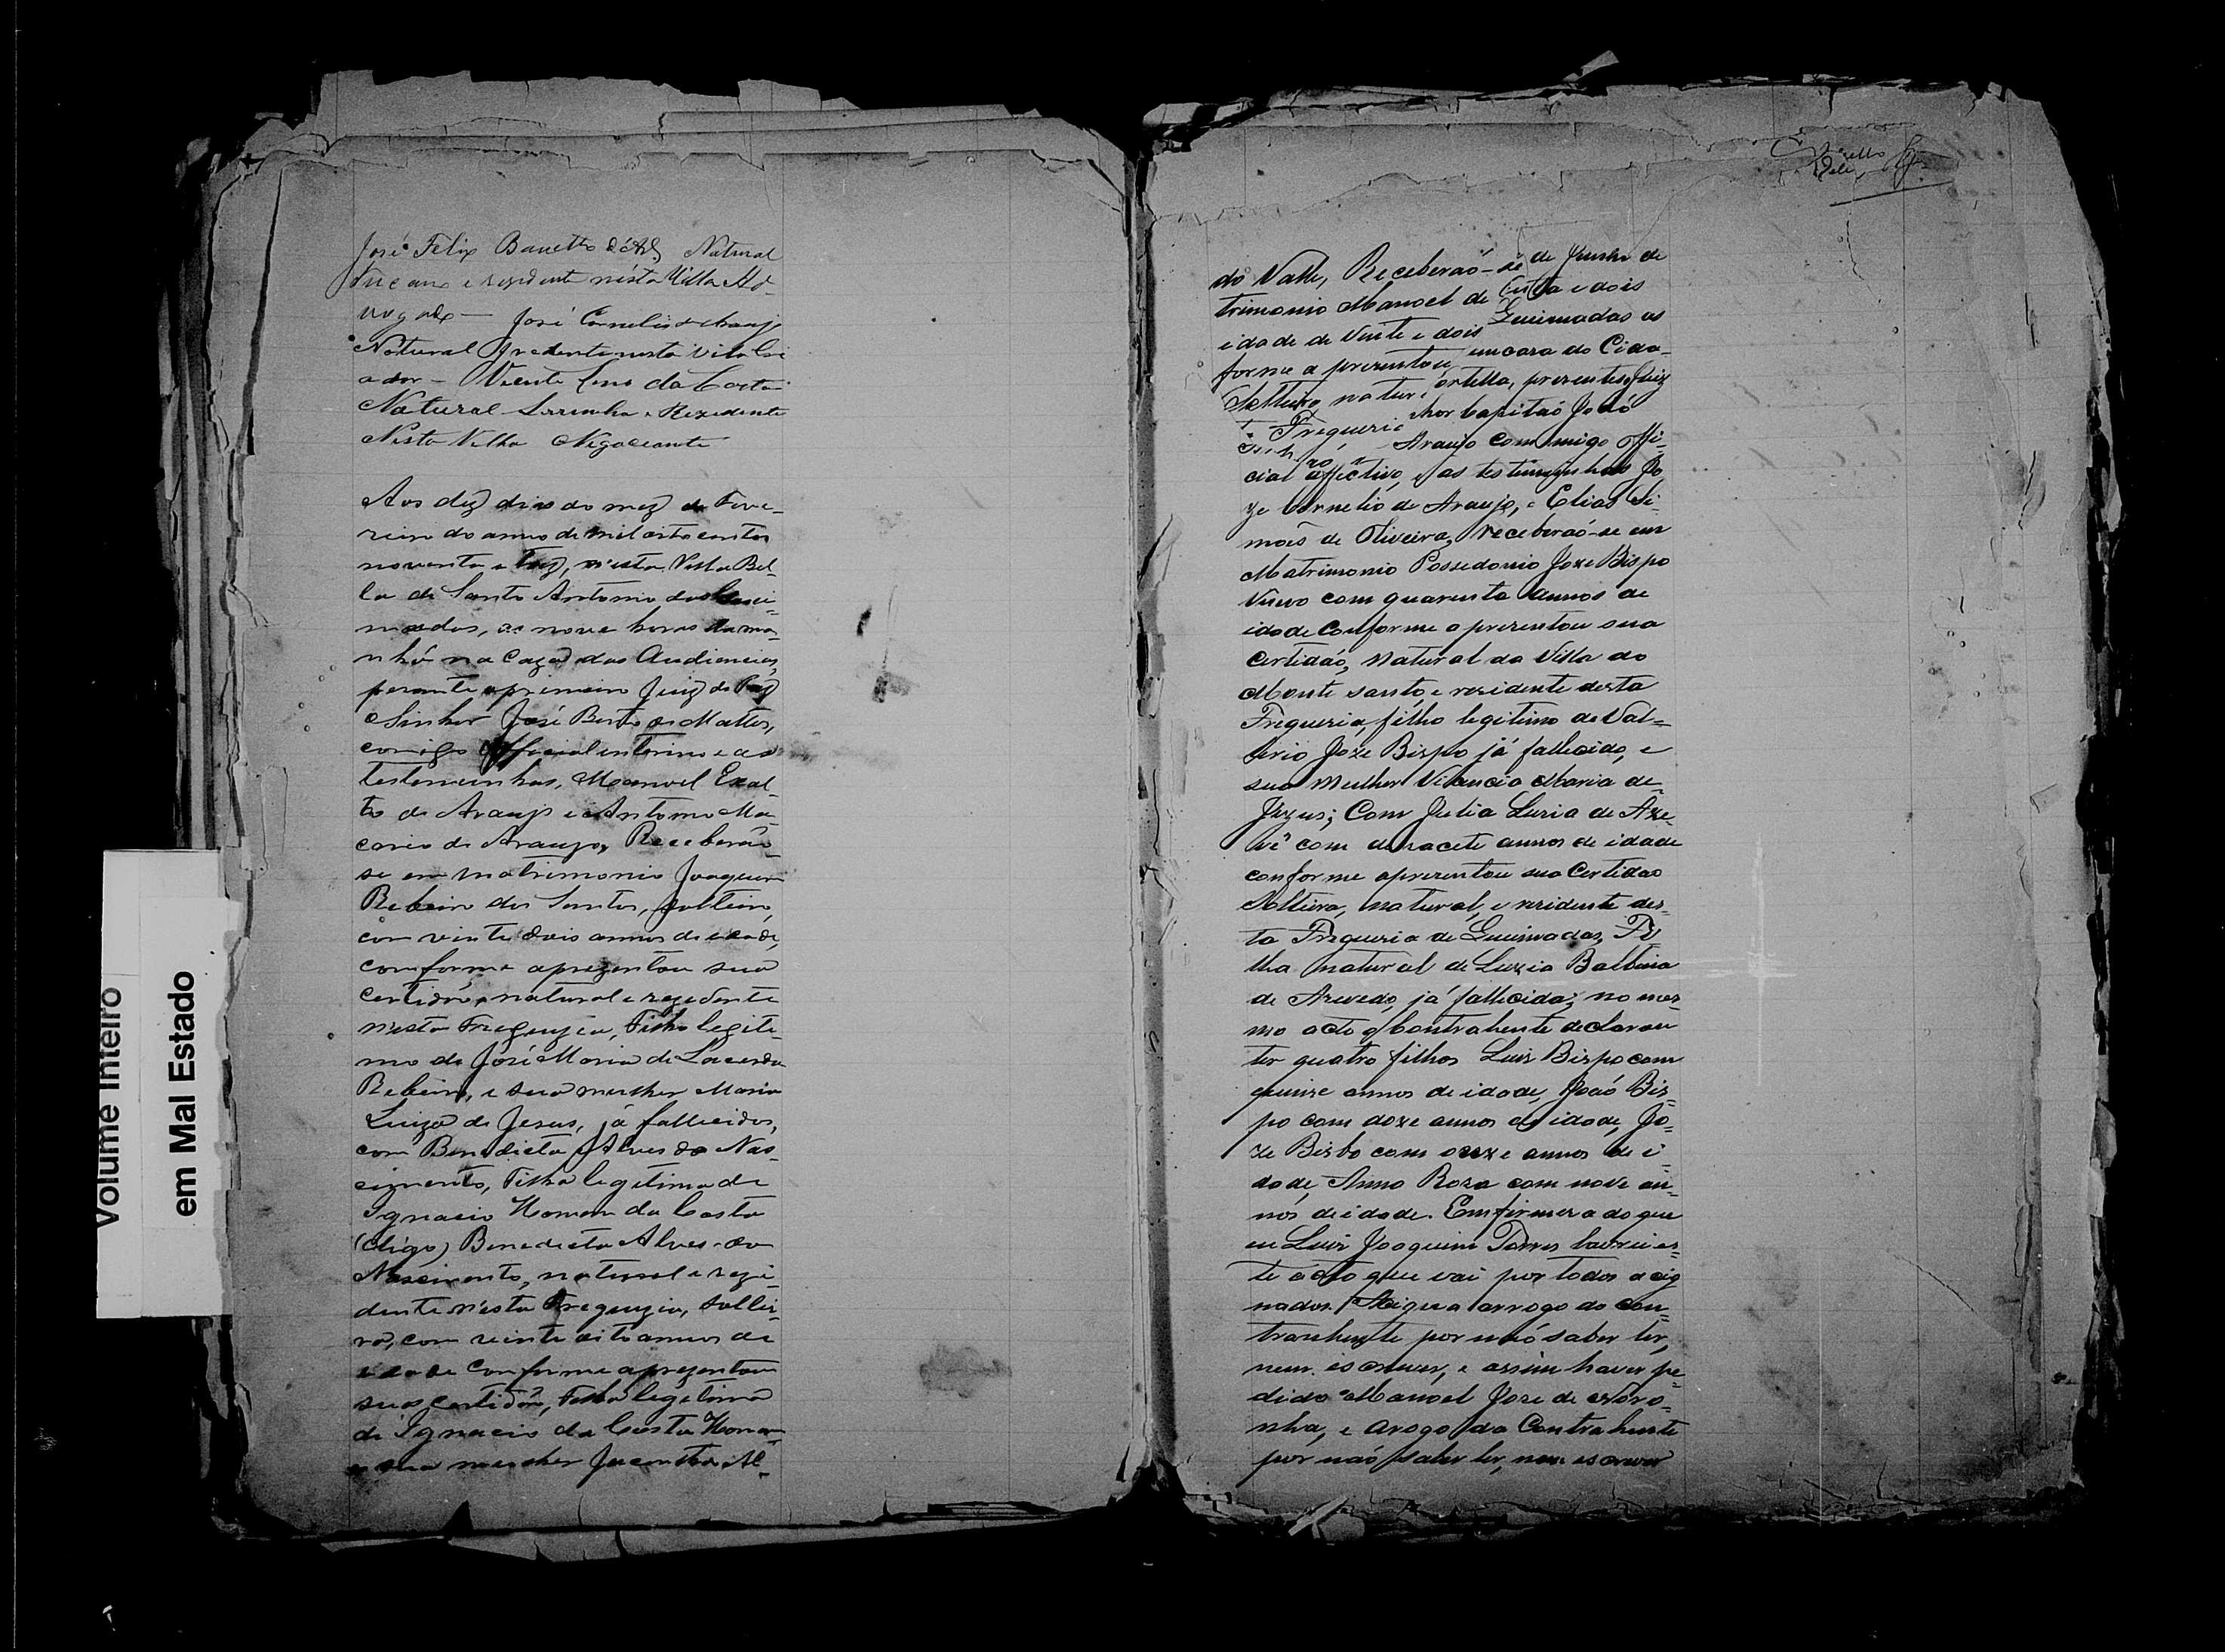 José Felix Barretto d'
Natural
e rezidente nésta Villa Ad-
vogado — José Cornelio de Araujo
Natural nesta Villa Cri
ador — Vicente da Costa
Natural Serrinha e Rezidente
Nesta Villa Negociante
Aos dez dias do mez de Feve-
reiro do anno de mil oito centos
noventa e trez, n'esta Villa Bel-
la de Santo Antonio das Quei-
madas, as nove horas da ma-
nhã na Caza das Audiencias,
perante o primeiro Juiz de Paz
Senhor José Bento de Mattos,
comigo Official interino e as
testemunhas, Manoel Exal-
to de Araujo e Antonio Ma-
cario de Araujo, Receberão-
se em matrimonio Joaquim
Rebeiro dos Santos, solteiro,
com vinte dois annos de idade,
conforme aprezentou sua
certidão, natural e rezidente
n'esta Freguezia, Filho legiti-
mo de José Maria de Lacerda
Rebeiro, e sua mulher Maria
Luiza de Jesus, já fallecidos,
com Benedicta Alves do Nas-
cimento, Filha legitima de
Ignacio Homem da Costa
(digo) Benedicta Alves do
Nascimento, natural e rezi-
dente n'esta Freguezia, soltei-
ra, com vinte oito annos de
idade conforme aprezentou
sua certidão, Filha legitima
de Ignacio da Costa Homem
e sua mulher Jacintha Al-
do Valle, Receberão-se
trimonio Manoel de
idade de vinte e dois
forme a prezentou
Solteiro natur
Freguezi
de Junho de
e dois
Queimadas as
em casa do Cida-
ortella, prezentes o Juiz
hor Capitão João
Araujo commigo offi-
cial effectivo, e as testimunhas Jo
ze Cornelio de Araujo, e Elias Si-
mões de Oliveira, receberaó-se em
Matrimonio Possedonio Joze Bispo
Viuvo com quarenta annos de
idade conforme aprezentou sua
certidaó, natural da Villa do
Monte santo, e residente desta
Freguezia, filho legitimo de Val-
lerio Joze Bispo já fallecido, e
sua mulher Venancia Maria de
Jezus; Com Julia Luzia de Aze-
vê com dezacete annos de idade
conforme aprezentou sua Certidao
Solteira, natural, e residente des-
ta Freguezia de Queimadas, Fi-
lha natural de Luzia Balbina
de Azevedo, já fallecida; no mes
mo acto o Contrahente declarou
ter quatro filhos Luiz Bispo com
quinze annos de idade, Joaó Bis-
po com doze annos de idade, Jo-
ze Bisbo com onze annos de i-
dade, Anna Roza com nove an-
nos de idade. Em firmeza do que
eu Luis Joaquim Torres lavrei es-
te acto que vai por todos acig
nados. Aciguea arrogo do con-
trauhente por naó saber ler,
nem escrever, e assim haver pe-
dido Manoel Joze de Noro-
nha, e arogo da Contrahente
por naó saber ler, nem escrever
Volume Inteiro
em Mal Estado